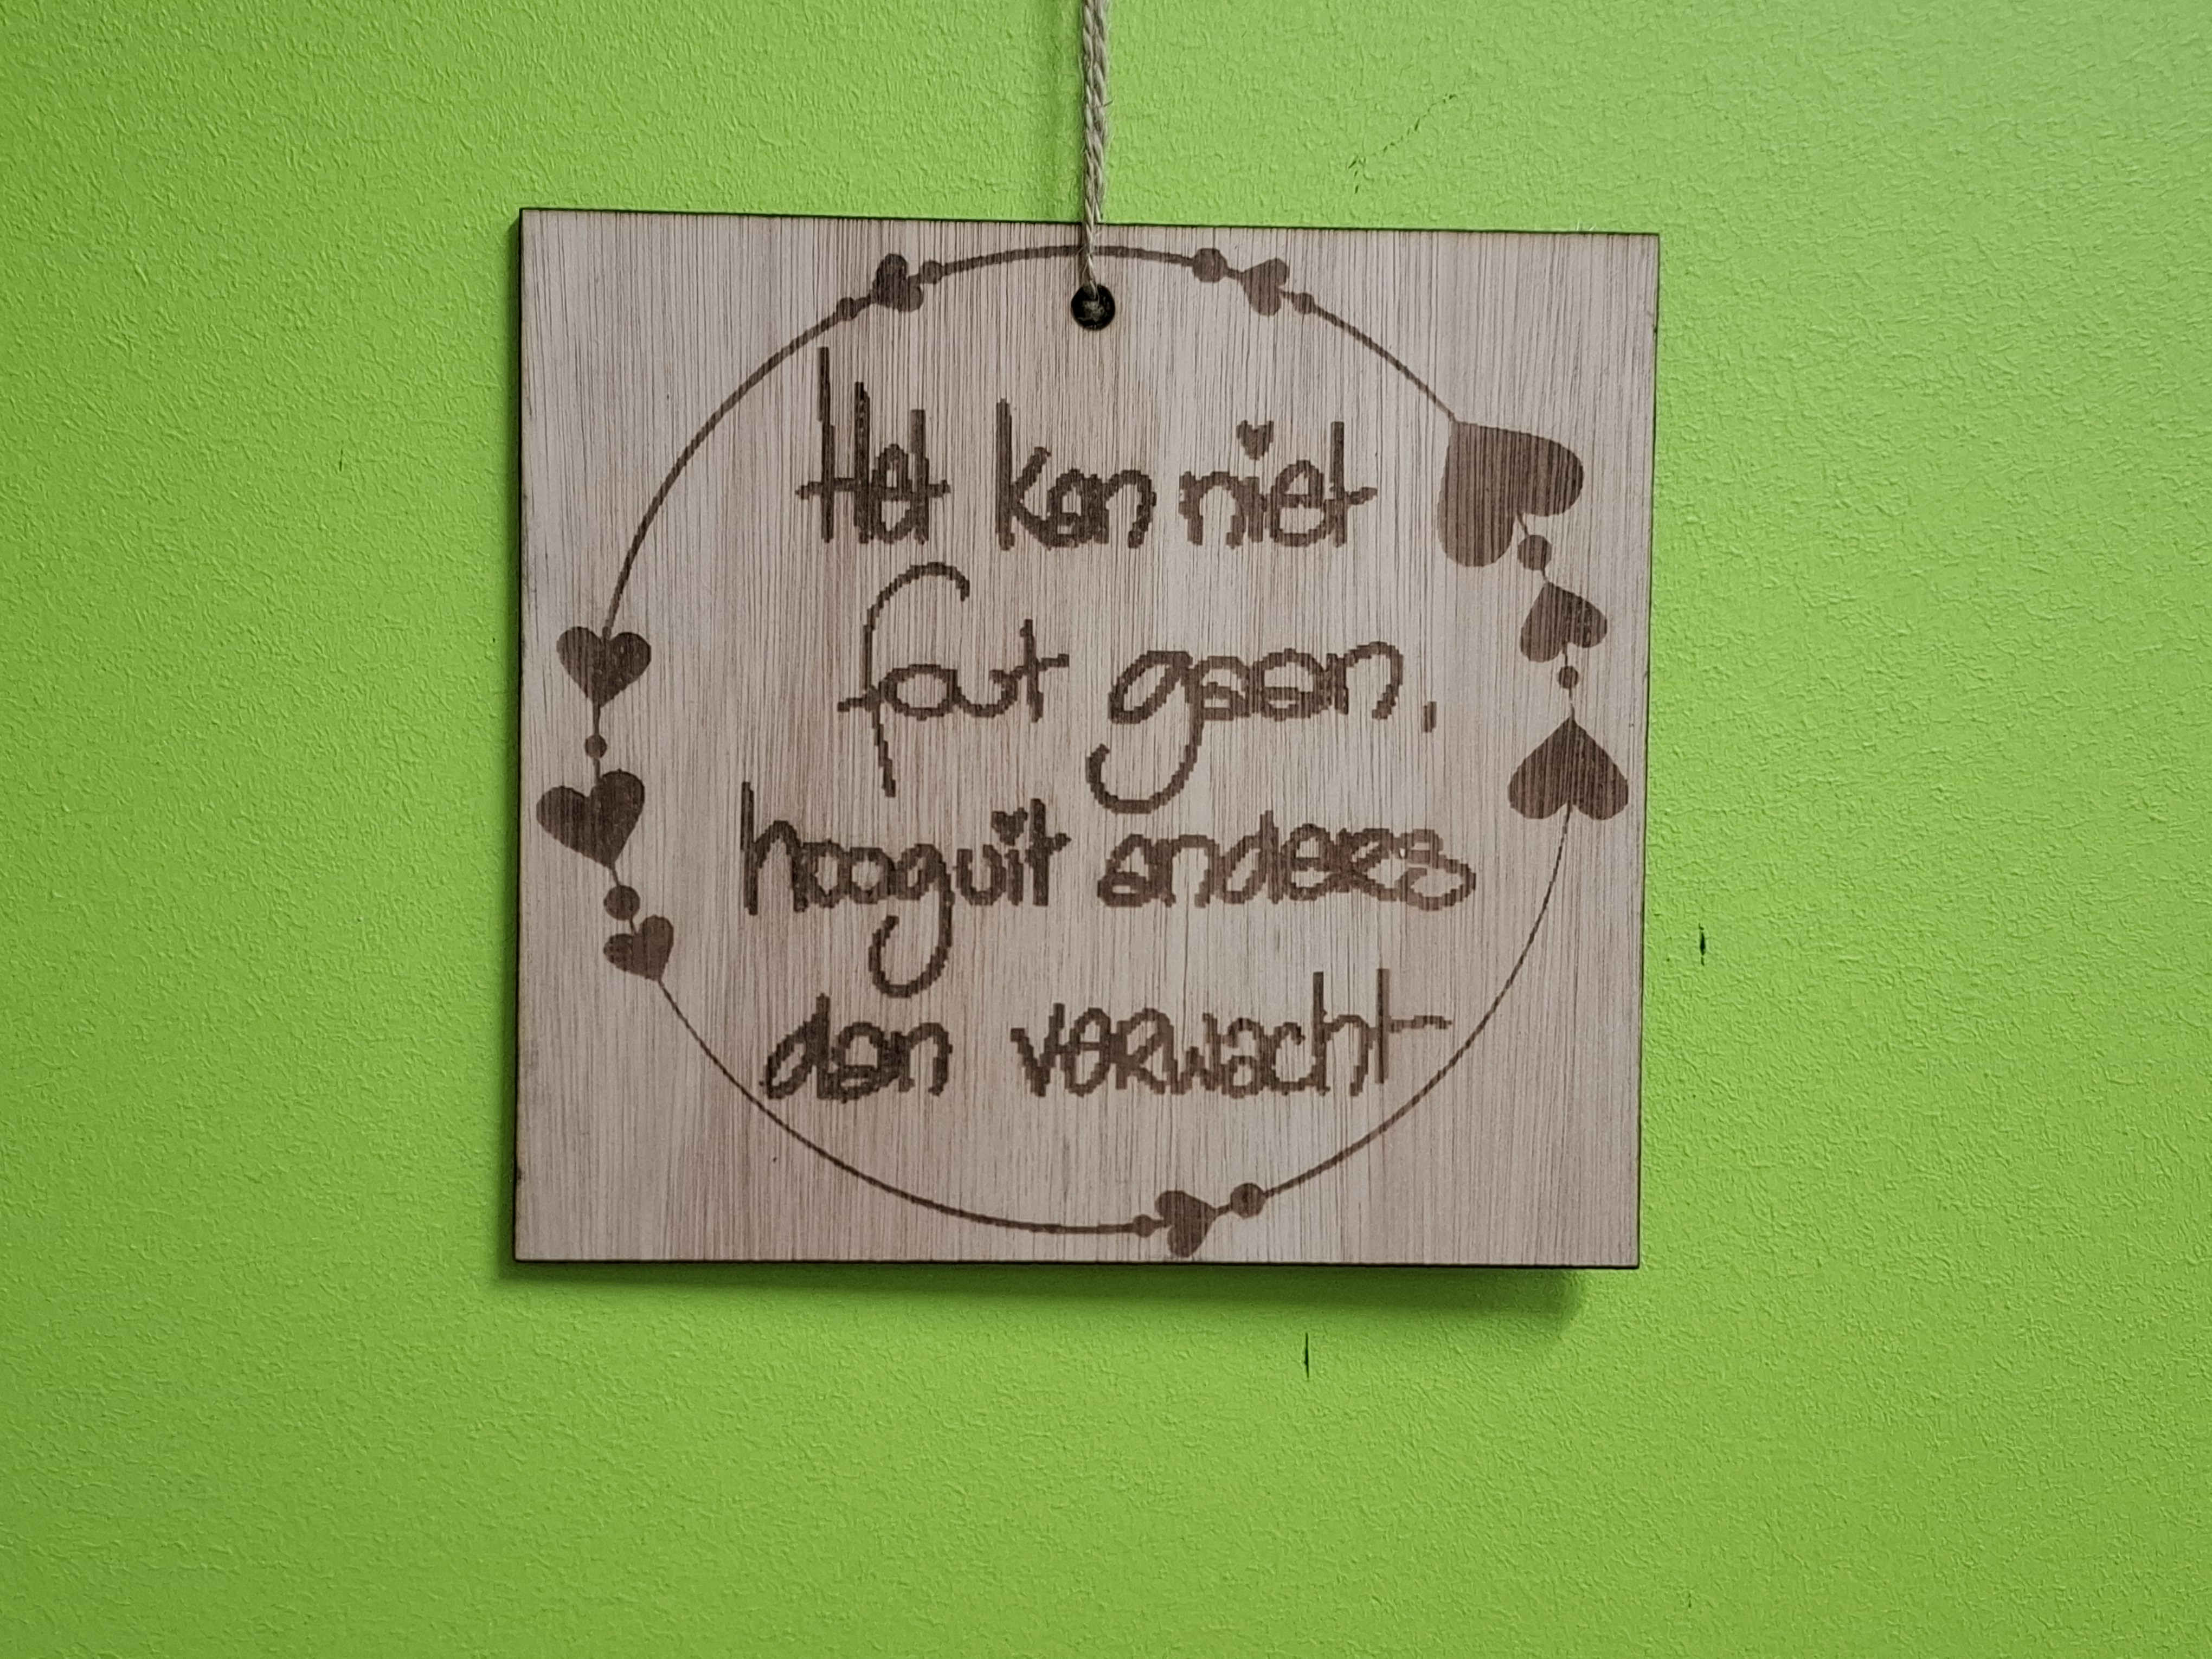 Het kan niet
fout gaan,
hooguit anders
dan verwacht